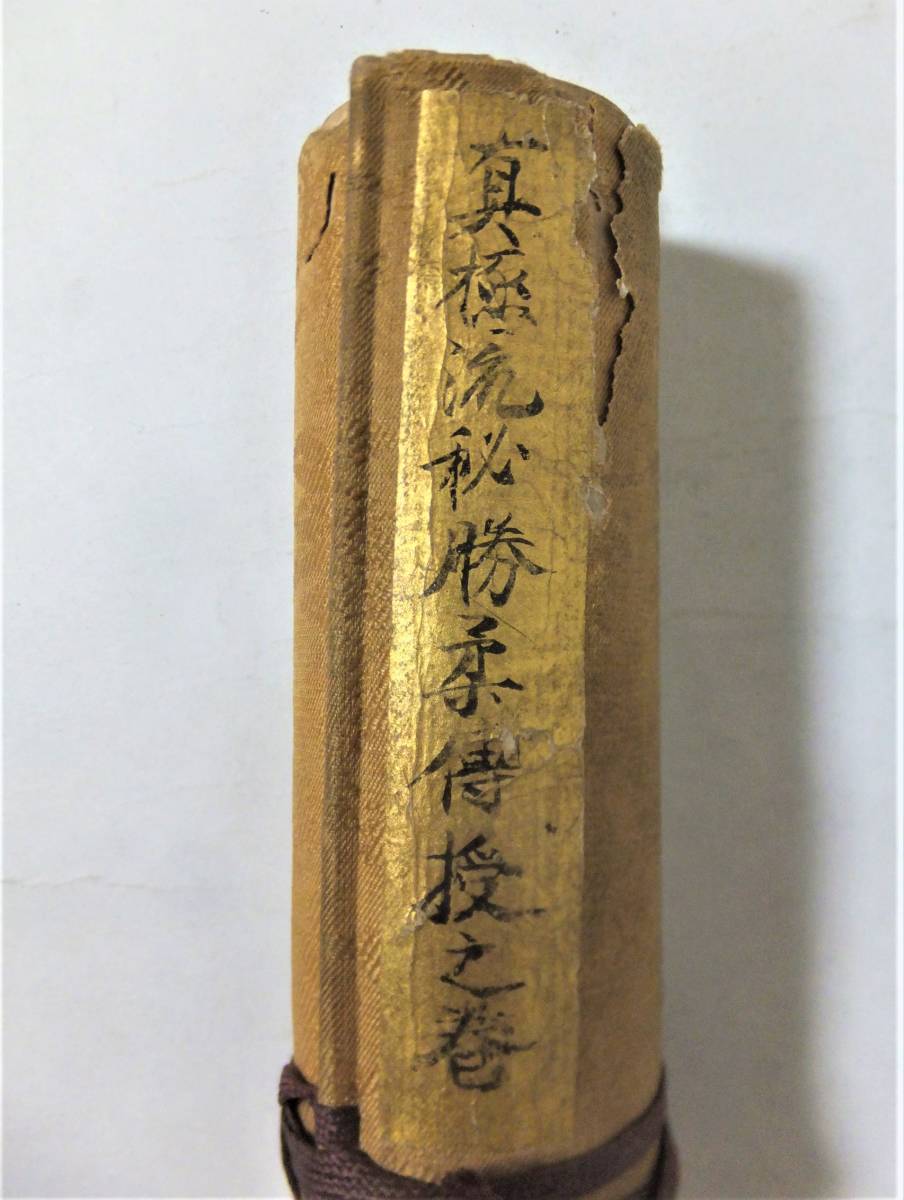 真極流秘勝柔傳授之巻